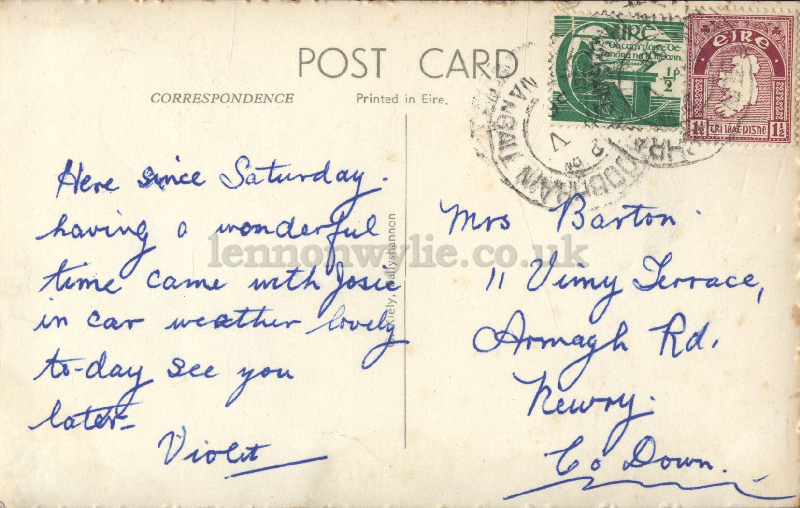 POST CARD
CORRESPONDENCE
Printed in Eire.
Here since Saturday.
having a wonderful
time came with Josie
in car weather lovely
to-day see you
later-
Violet
Mrs Barton.
11 Vimy Terrace,
Armagh Rd.
Newry.
Co Down.
Kiely, Ballyshannon
lennonwylie.co.uk
½p
éire
1½ 1½
trí leat-pingne